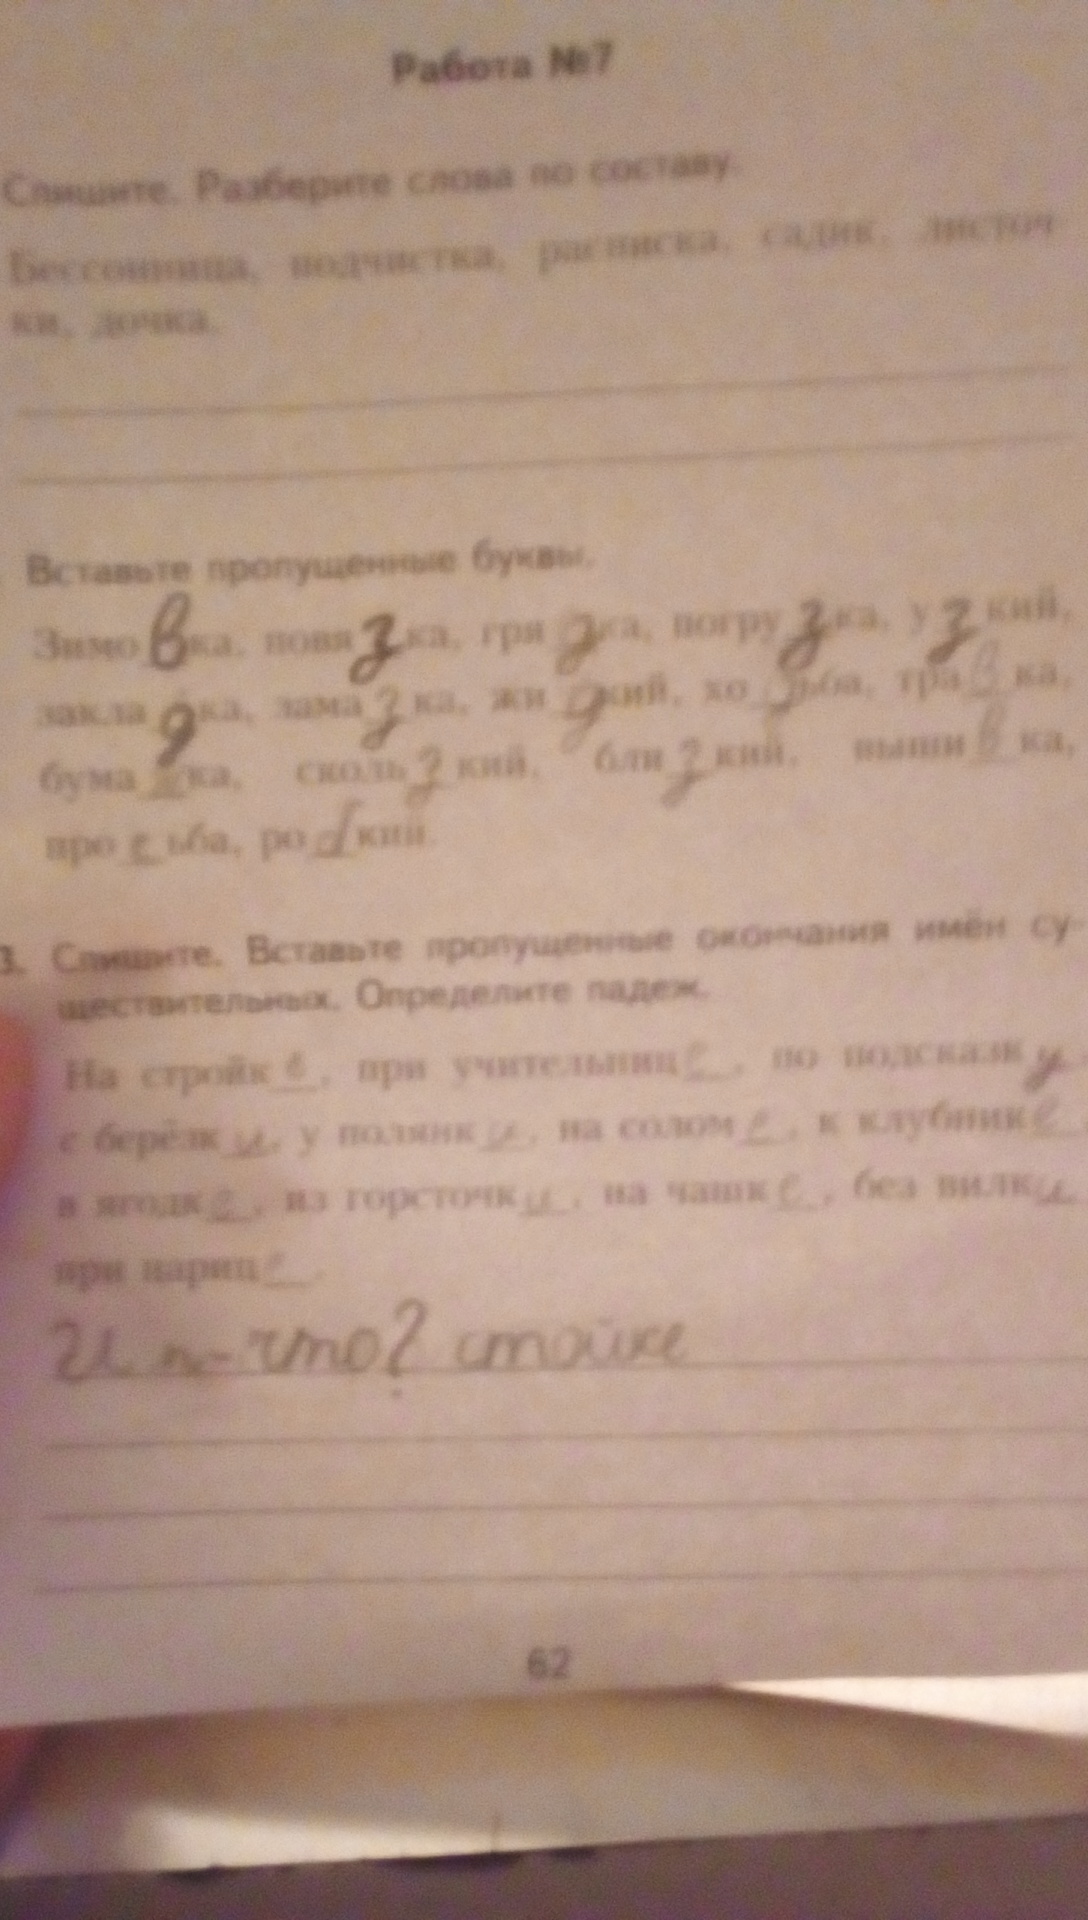 Работа №7
Спишите. Разберите слова по составу.
Бессонница, подчистка, расписка, садик, листоч-
ки, дочка.
Вставьте пропущенные буквы.
Зимовка, повязка, грядка, погрузка, узкий,
закладка, замазка, жидкий, ходьба, травка,
бумажка, скользкий, близкий, вышивка,
просьба, родкий.
3. Спишите. Вставьте пропущенные окончания имён су-
ществительных. Определите падеж.
На стройке, при учительнице, по подсказку
с берёзки, у полянки, на соломе, к клубнике,
в ягодке, из горсточки, на чашке, без вилки
при царице.
что? стойке
62